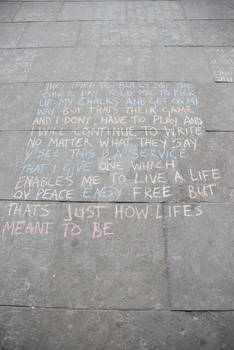 THEY TRIED TO BULLY ME THE
OTHER DAY TOLD ME TO PICK
UP MY CHALKS AND GET ON MY
WAY BUT THATS THEIR GAME
AND I DONT HAVE TO PLAY AND
I WILL CONTINUE TO WRITE
NO MATTER WHAT THEY SAY
Y'SEE THIS IS A SERVICE
THAT I GIVE ONE WHICH
ENABLES ME TO LIVE A LIFE
OV PEACE EASY FREE BUT
THATS JUST HOW LIFES
MEANT TO BE